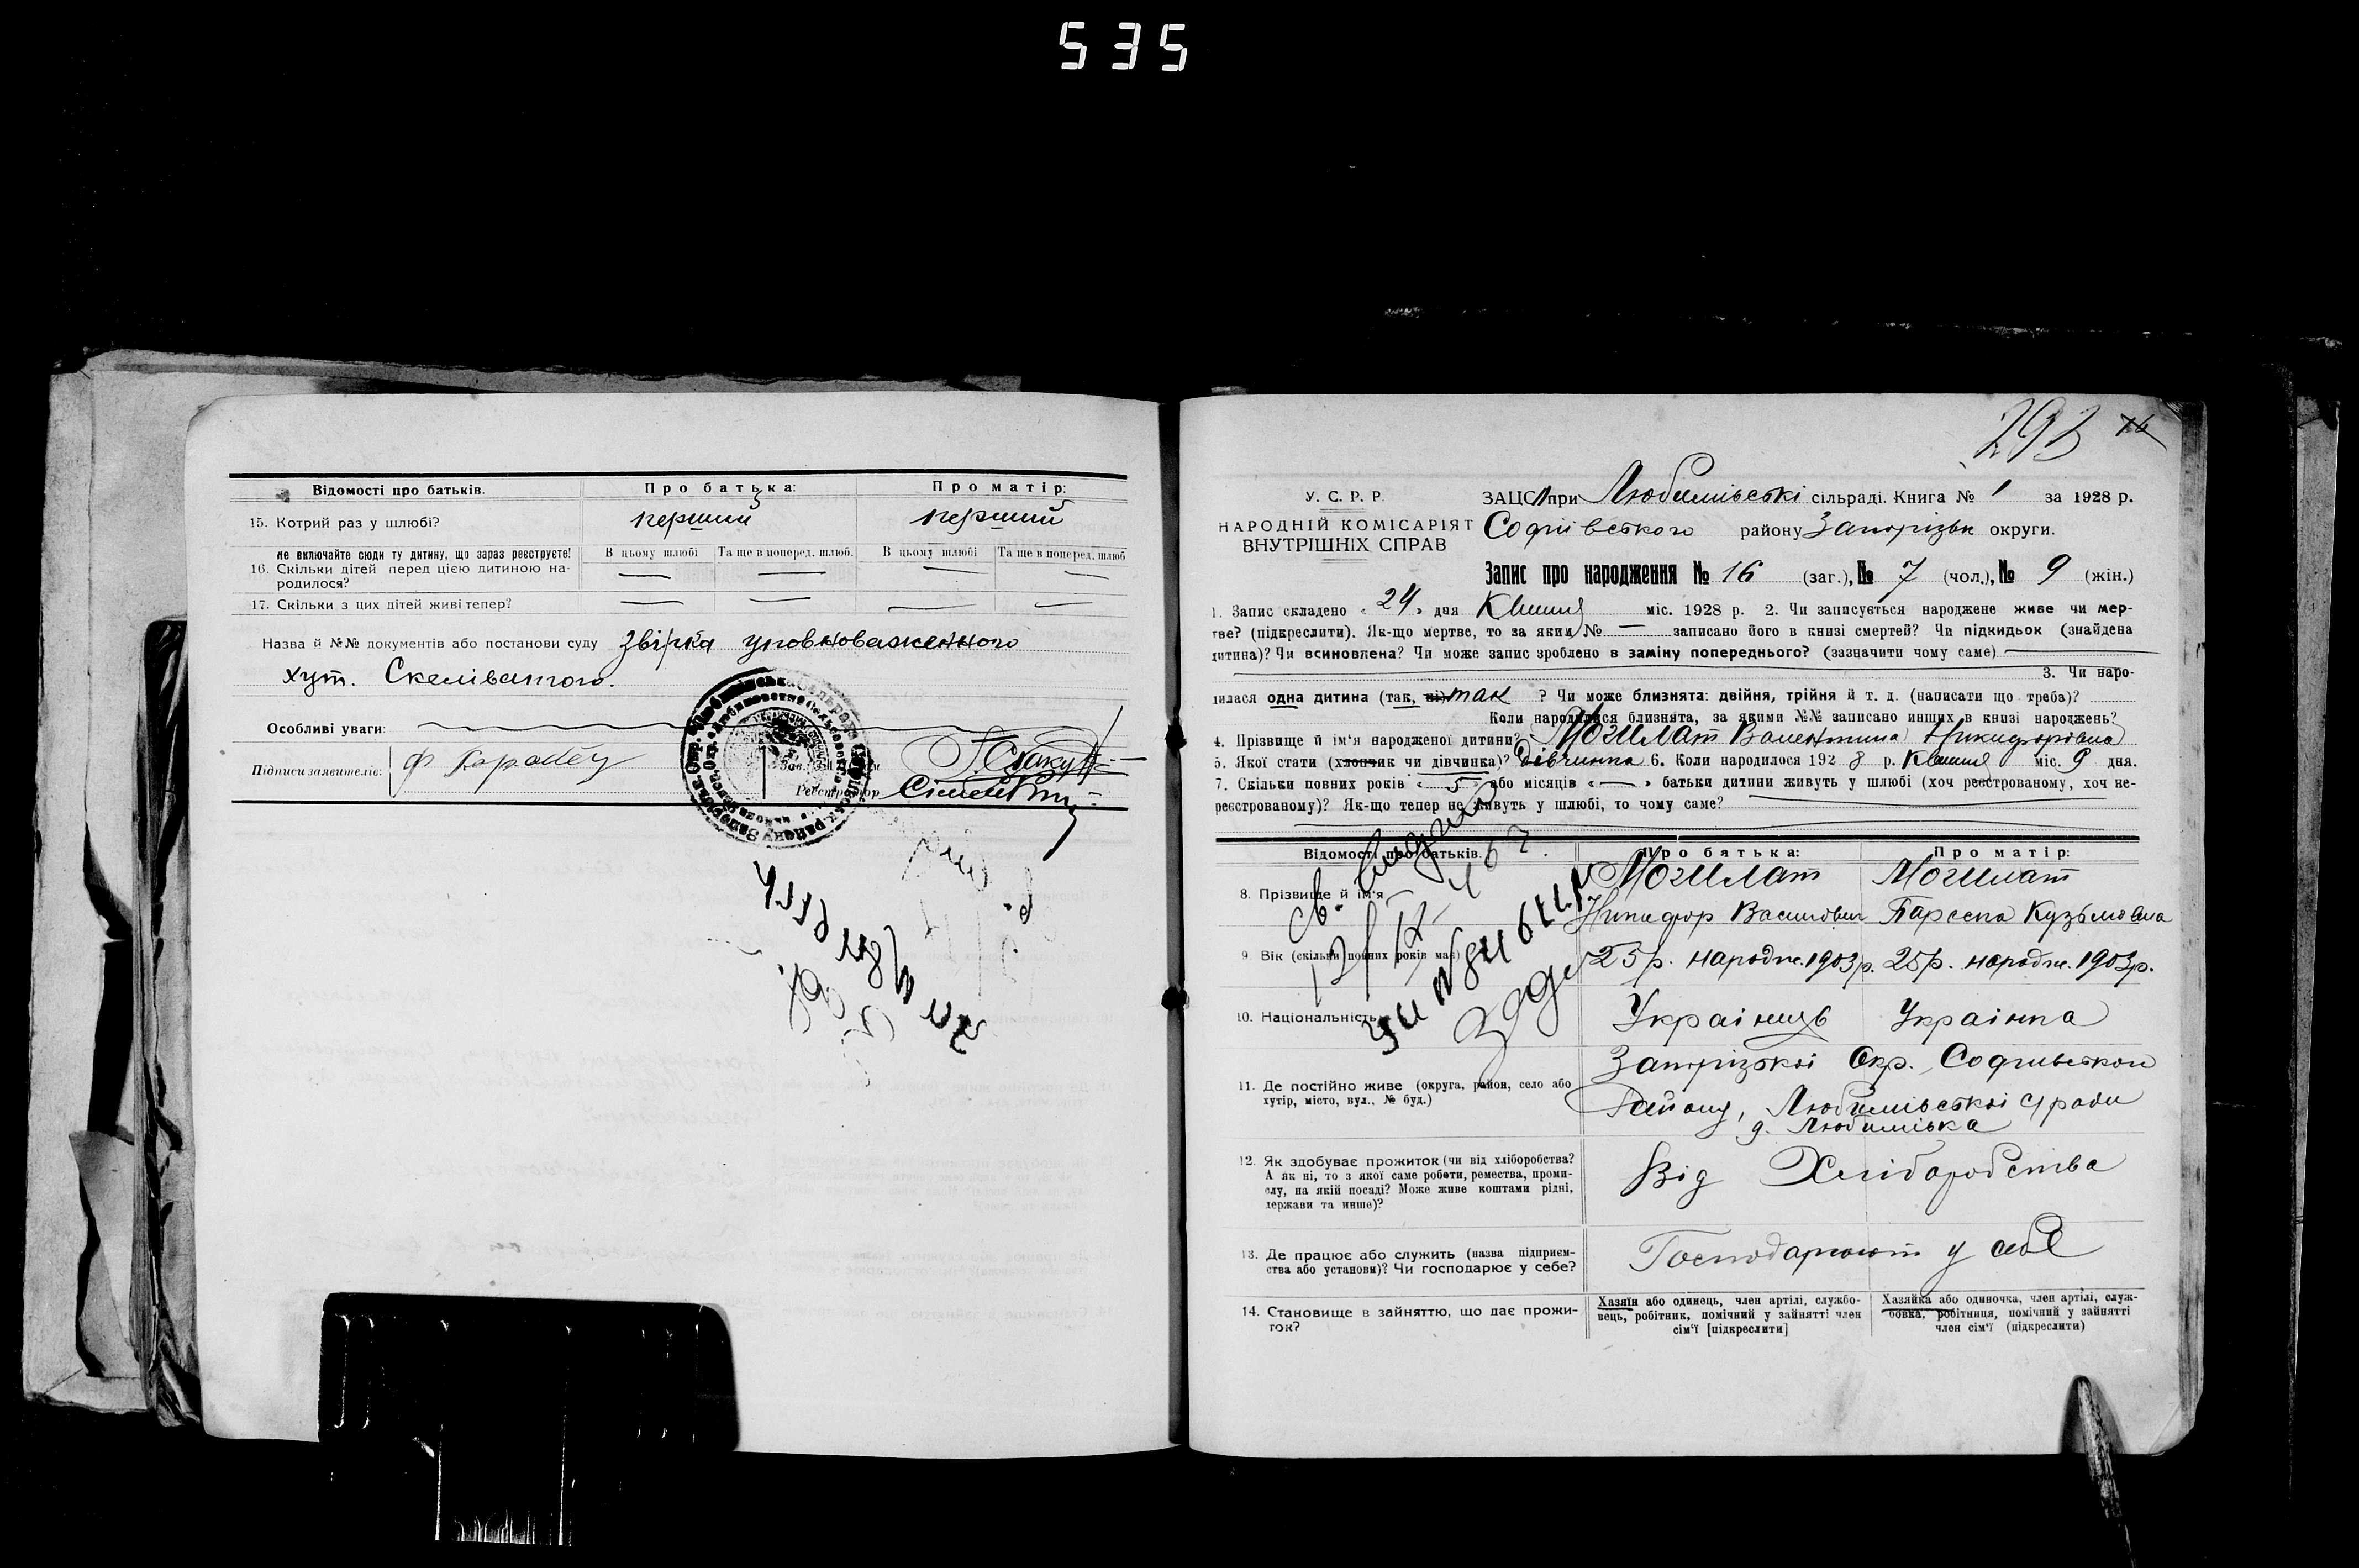 535
Відомості про батьків. Про батька: Про матір:
15. Котрий раз у шлюбі? перший перший
Не включайте сюди ту дитину, що зараз реєструєте! В цьому шлюбі Та ще в поперед. шлюб. В цьому шлюбі Та ще в поперед. шлюб
16. Скільки дітей перед цією дитиною на-
родилося? — — — —
17. Скільки з цих дітей живі тепер? — — — —
Назва й №№ документів або постанови суду Звірка уповноваженного
хут. Скеліватого.
Особливі уваги:
Підписи заявителів:
Реєстратор
293 16
У. С. Р. Р.
НАРОДНІЙ КОМІСАРІЯТ
ВНУТРІШНІХ СПРАВ
ЗАЦС при Любимівські сільраді. Книга № 1 за 1928 р.
Софіівського району Запорізьк округи.
Запис про народження № 16 (заг.), № 7 (чол.), № 9 (жін.)
1. Запис складено « 24 » дня Квитня міс. 1928 р. 2. Чи записується народжене живе чи мер-
тве? (підкреслити). Як-що мертве, то за яким № — записано його в книзі смертей? Чи підкидьок (знайдена
дитина)? Чи всиновлена? Чи може запис зроблено в заміну попереднього? (зазначити чому саме)
3. Чи наро-
дилася одна дитина (так, ні) так ? Чи може близнята: двійня, трійня й т. д. (написати що треба)?
Коли народилися близнята, за якими №№ записано инших в книзі народжень?
4. Прізвище й ім'я народженої дитини? Могилат Валентина Никифорівна
5. Якої стати (хлопчик чи дівчинка)? Дівчинка 6. Коли народилося 192 8 р. Квитня міс. 9 дня.
7. Скільки повних років « 5 » або місяців « — » батьки дитини живуть у шлюбі (хоч реєстрованому, хоч не-
реєстрованому)? Як-що тепер не живуть у шлюбі, то чому саме?
Відомості про батьків. Про батька: Про матір:
8. Прізвище й ім'я Могилат Могилат
Никифор Васильович Параска Кузьмовна
9. Вік (скільки повних років має) 25 р. народж. 1903 р. 25 р. народж. 1903 р.
10. Національність Украінець Украінка
11. Де постійно живе (округа, район, село або
хутір, місто, вул., № буд.)
Запорізькоі Окр. Софиівскои
Району, Любимівськоі с/ради
д. Любимівка
12. Як здобуває прожиток (чи від хліборобства?
А як ні, то з якої саме роботи, ремества, проми-
слу, на якій посаді? Може живе коштами рідні,
держави та инше)?
Від Хліборобства
13. Де працює або служить (назва підприєм-
ства або установи)? Чи господарює у себе?
Господарюют у себе
14. Становище в зайняттю, що дає прожи-
ток?
Хазяїн або одинець, член артілі, службо-
вець, робітник, помічний у зайнятті член
сім'ї [підкреслити]
Хазяйка або одиночка, член артілі, служ-
бовка, робітниця, помічний у зайнятті
член сім'ї (підкреслити)